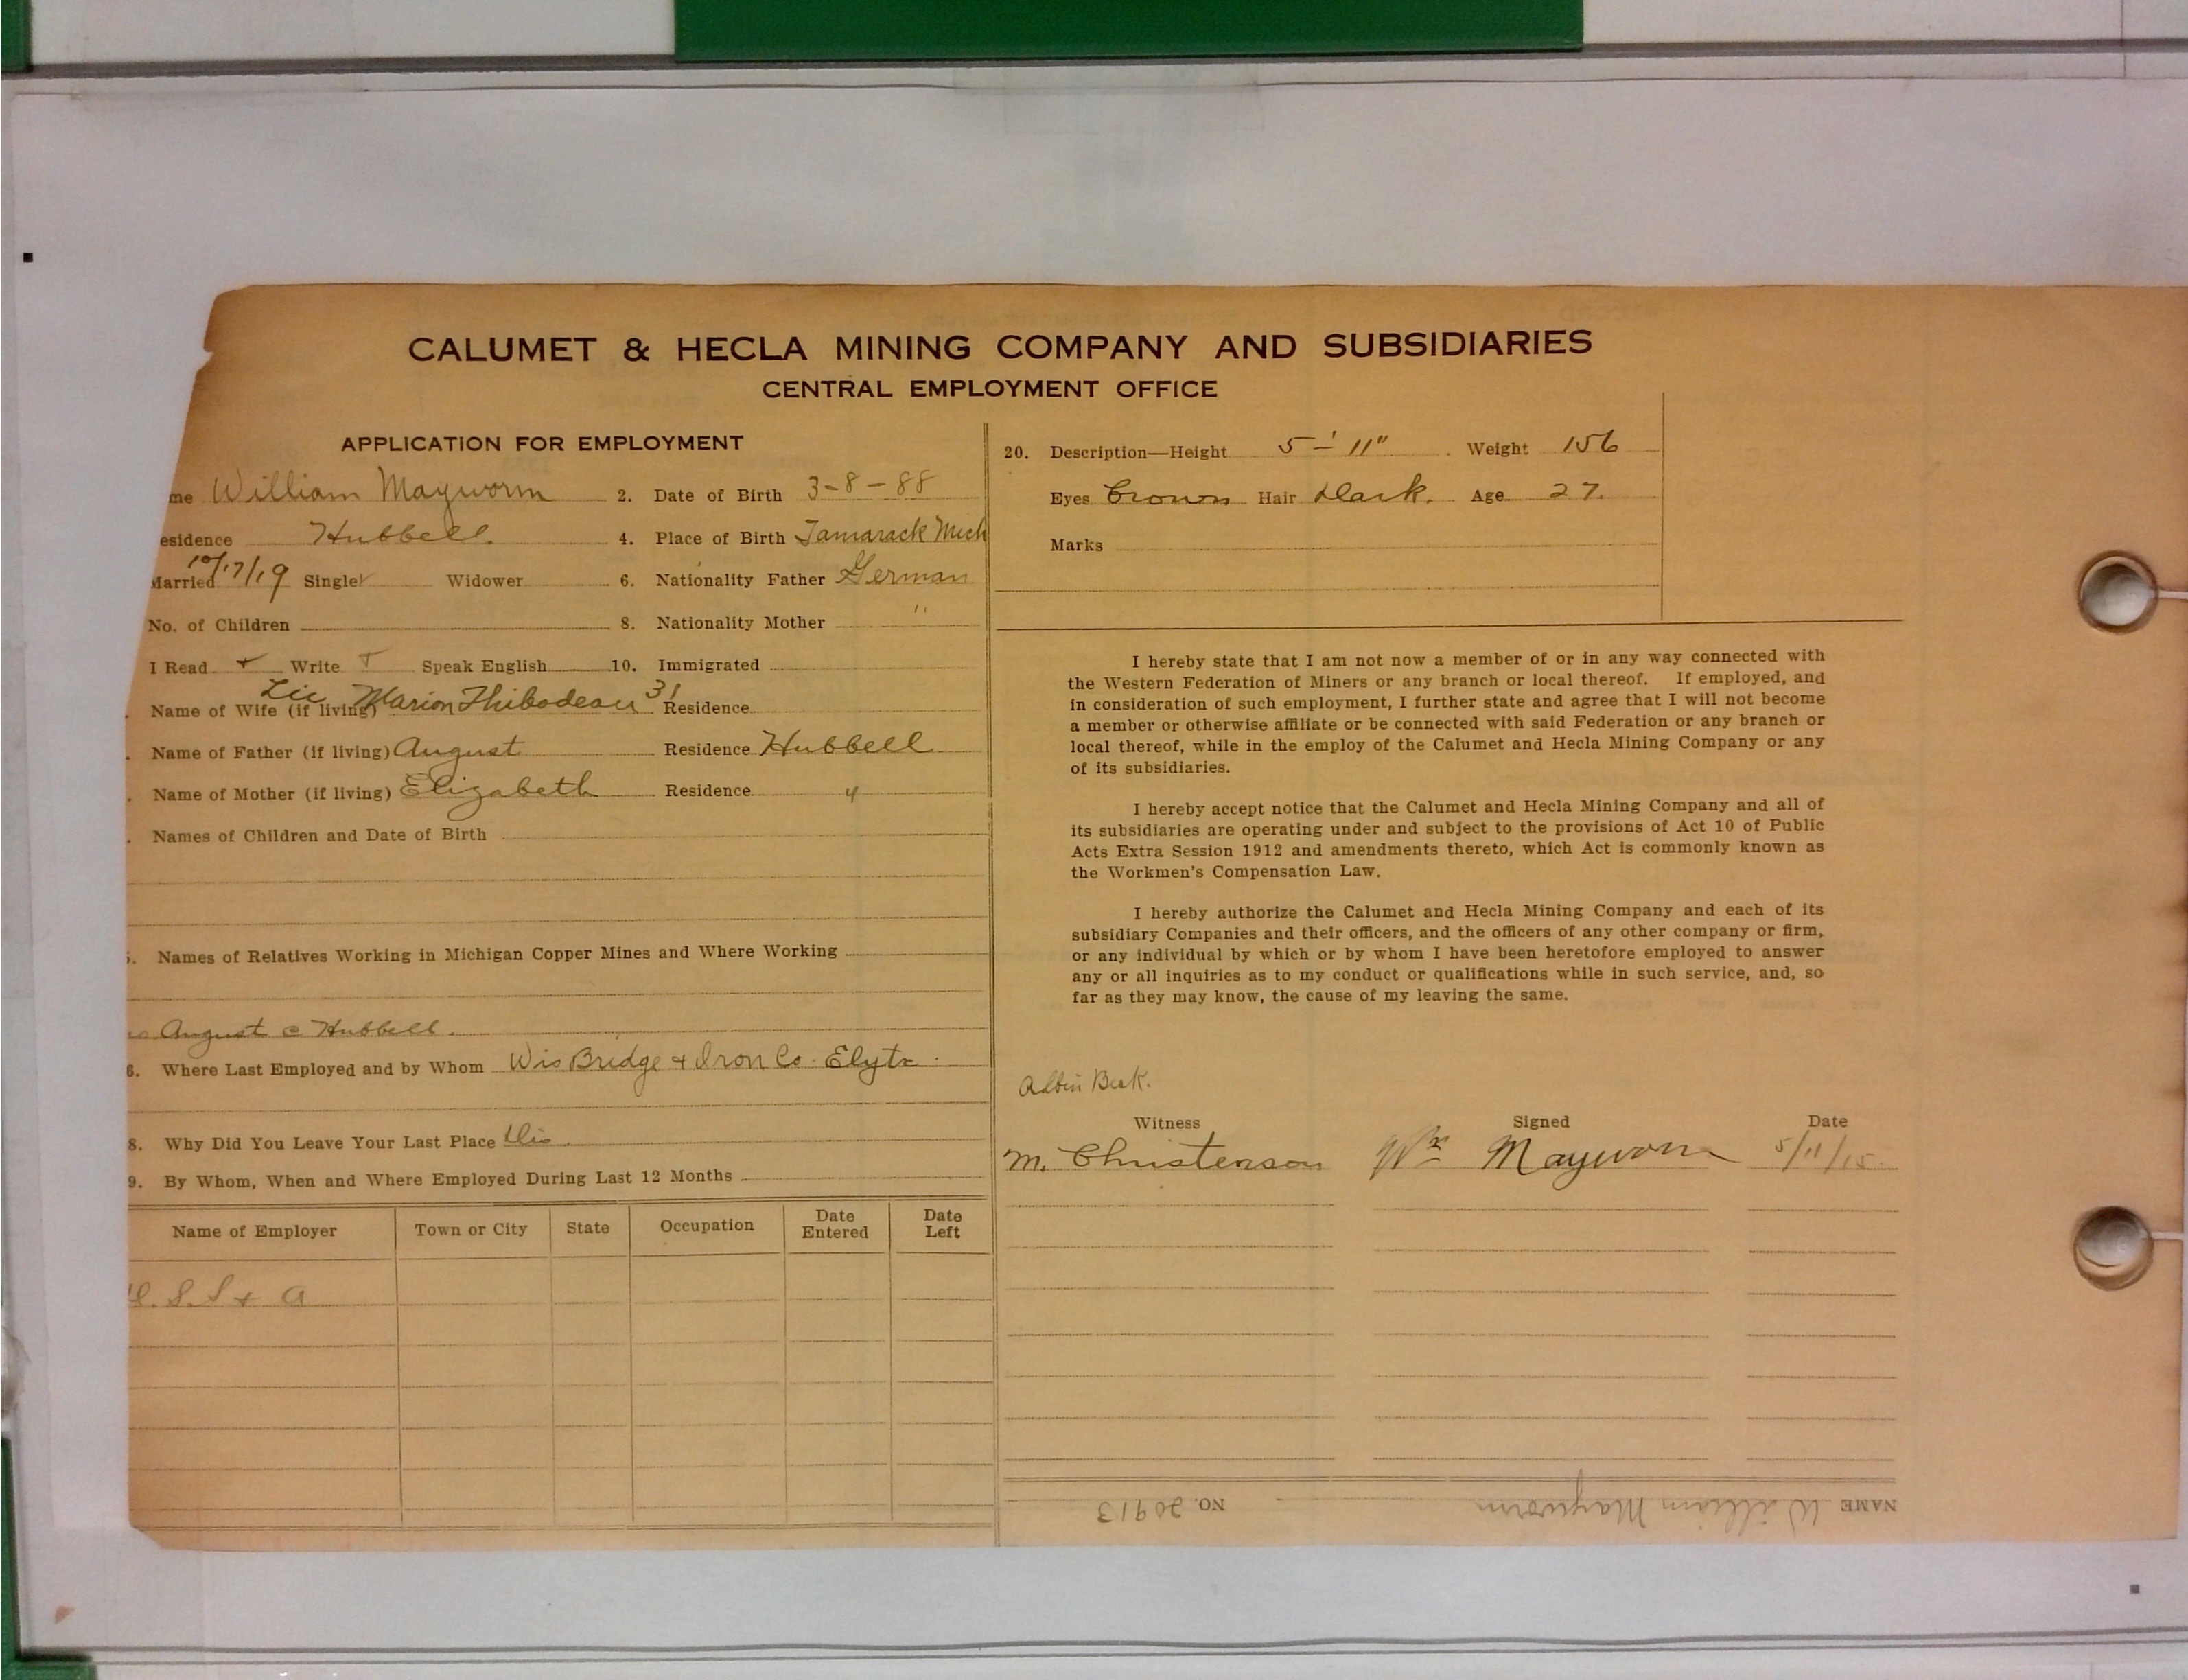 CALUMET & HECLA MINING COMPANY AND SUBSIDIARIES
CENTRAL EMPLOYMENT OFFICE
APPLICATION FOR EMPLOYMENT
me William Mayworm 2. Date of Birth 3-8-88
esidence Hubbell. 4. Place of Birth Tamarack Mich
Married 10/17/19 Single Widower 6. Nationality Father German
No. of Children 8. Nationality Mother "
I Read + Write + Speak English 10. Immigrated
Name of Wife (if living) Marion Thibodeau 31 Residence
. Name of Father (if living) August Residence Hubbell
. Name of Mother (if living) Elizabeth Residence "
. Names of Children and Date of Birth
. Names of Relatives Working in Michigan Copper Mines and Where Working
August c Hubbell.
6. Where Last Employed and by Whom Wis Bridge & Iron Co.
8. Why Did You Leave Your Last Place Dis.
9. By Whom, When and Where Employed During Last 12 Months
Name of Employer Town or City State Occupation Date Entered Date Left
S. S + A
20. Description—Height 5'-11" Weight 156
Eyes brown Hair Dark. Age 27.
Marks
I hereby state that I am not now a member of or in any way connected with
the Western Federation of Miners or any branch or local thereof. If employed, and
in consideration of such employment, I further state and agree that I will not become
a member or otherwise affiliate or be connected with said Federation or any branch or
local thereof, while in the employ of the Calumet and Hecla Mining Company or any
of its subsidiaries.
I hereby accept notice that the Calumet and Hecla Mining Company and all of
its subsidiaries are operating under and subject to the provisions of Act 10 of Public
Acts Extra Session 1912 and amendments thereto, which Act is commonly known as
the Workmen's Compensation Law.
I hereby authorize the Calumet and Hecla Mining Company and each of its
subsidiary Companies and their officers, and the officers of any other company or firm,
or any individual by which or by whom I have been heretofore employed to answer
any or all inquiries as to my conduct or qualifications while in such service, and, so
far as they may know, the cause of my leaving the same.
Albin
Witness Signed Date
M. Christenson Wm Mayworm 5/11/15
NAME William Mayworm NO. 20913